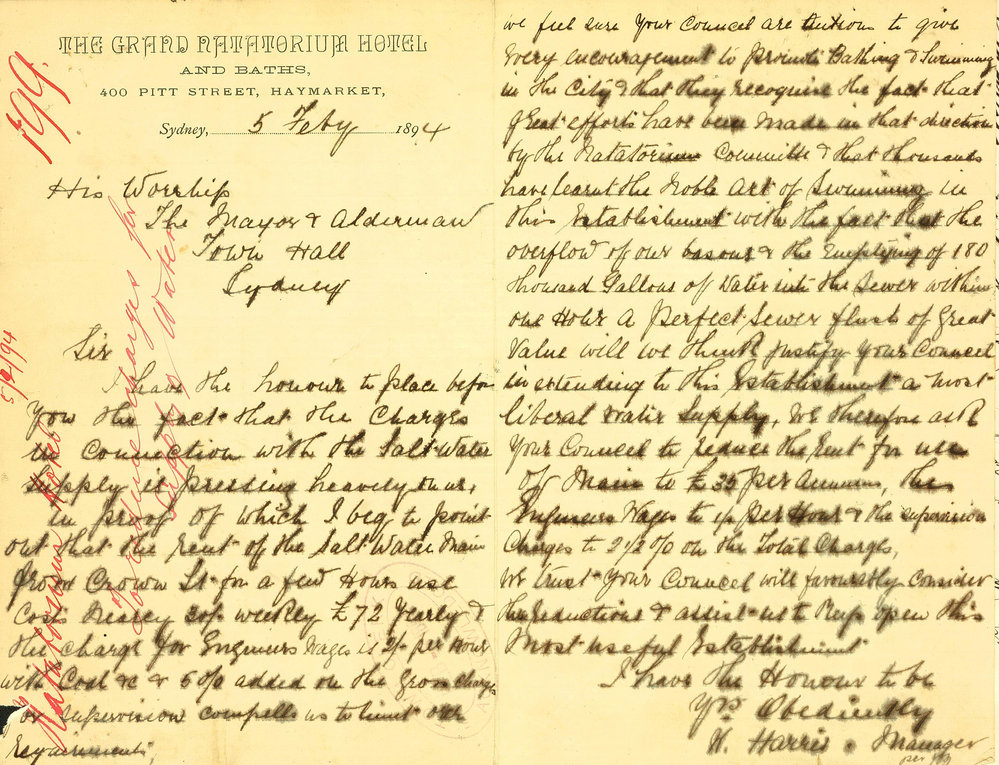 THE GRAND NATATORIUM HOTEL
AND BATHS,
400 PITT STREET, HAYMARKET,
Sydney, 5 Feby 1894
His Worship
The Mayor & Alderman
Town Hall
Sydney
Sir
I have the honour to place before
You the fact that the Charges
in Connection with the Salt Water
Supply is pressing heavely on us,
in proof of which I beg to point
out that the Rent of the Salt Water Main
from Crown St for a few Hours use
Costs Nearly 30/- weekly £72 Yearly &
the charge for Engineers Wages is 2/- per Hour
with Coal &c & 5 0/0 added on the Gross charges
for Supervision compells us to limit our
Requirements,
we feel sure Your Councel are anxious to give
Every encouragement to promote Bathing & Swimming
in the City & that they recognise the fact that
great efforts have been made in that direction
by the Natatorium Committe & that thousands
have learnt the Noble Art of Swimming in
this Establishment with the fact that the
overflow of our basons & the Emptying of 180
thousand Gallons of Water into the Sewer within
one Hour a perfect Sewer flush of Great
Value will we think justify Your Councel
in extending to this Establishment a most
liberal Water Supply, We therefore ask
Your Councel to reduce the Rent for use
of Main to £35 per Annum, the
Engineers Wages to 1/- per Hour & the supervision
Charges to 2 1/2 0/0 on the Total Charges,
We trust Your Councel will favourably Consider
the reductions & assist us to Keep open this
Most useful Establishment
I have the Honour to be
Yrs Obediently
W. Harris . Manager
199.
5/2/94
Natatorium Hotel
charges for
Supply Water